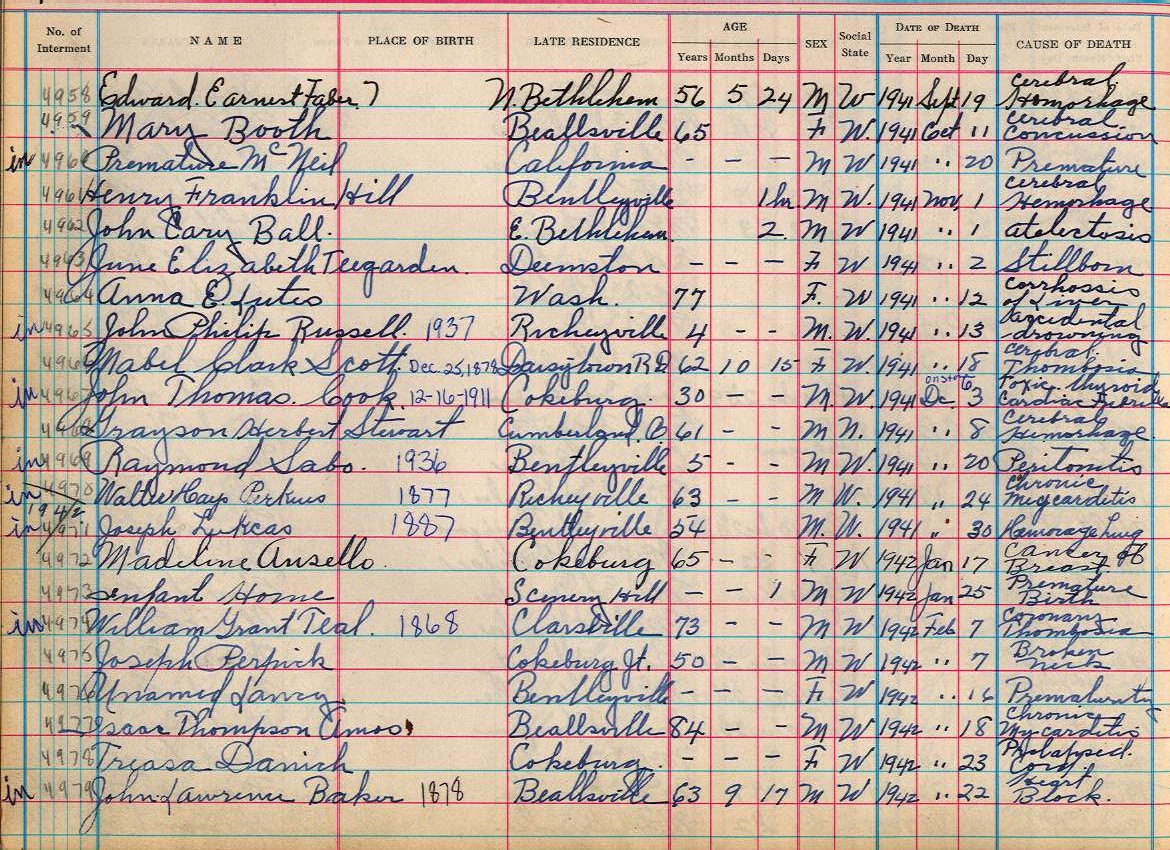 No. of Interment NAME PLACE OF BIRTH LATE RESIDENCE AGE Years Months Days SEX Social State DATE OF DEATH Year Month Day CAUSE OF DEATH
4958 Edward Earnest Faber 7 N. Bethlehem 56 5 24 M W 1941 Sept 19 Cerebral Hemorhage
4959 Mary Booth Beallsville 65 F W. 1941 Oct 11 Cerebral Concussion
in 4960 Premature McNeil California - - - M W 1941 " 20 Premature
4961 Henry Franklin Hill Bentleyville 1 hr M W. 1941 Nov. 1 Cerebral Hemorhage
4962 John Cary Ball. E. Bethlehem. 2. M W 1941 " 1 atelectosis
4963 June Elizabeth Teegarden. Deemston - - - F W 1941 " 2 Stillborn
4964 Anna E. Lutes Wash. 77 F. W 1941 " 12 Corrhossis of Liver
in 4965 John Philip Russell. 1937 Richeyville 4 - - M. W 1941 " 13 accidental drowning
4966 Mabel Clark Scott. Dec. 25, 1878 Daisytown R.D. 62 10 15 F W. 1941 " 18 Cerebral Thombosis
in 4967 John Thomas. Cook. 12-16-1911 Cokeburg. 30 - - M. W 1941 Dc. 3 Toxic thyroid Cardiac
4968 Grayson Herbert Stewart 61 - - M N. 1941 " 8 Cerebral Hemorhage.
in 4969 Raymond Sabo. 1936 Bentleyville 5 - - M W 1941 " 20 Peritonitis
in 4970 Hays Perkins 1877 Richeyville 63 - - M W. 1941 " 24 Chronic Myocarditis
1942
in 4971 Joseph Lukcas 1887 Bentleyville 54 M. W. 1941 " 30
4972 Madeline Ansello. Cokeburg 65 - - F W 1942 Jan 17 Cancer of Breast
4973 Infant Home Scenery Hill - - 1 M W 1942 Jan 25 Premature Birth
in 4974 William Grant Teal. 1868 73 - - M W 1942 Feb 7 Coronary Thombosia
4975 Joseph Perpick Cokeburg Jt. 50 - - M W 1942 " 7 Broken neck
4976 Unamed Bentleyville - - - F W 1942 " 16 Prematurity
4977 Isaac Thompson Amos Beallsville 84 - - M W 1942 " 18 Chronic Mycarditis
4978 Treasa Danich Cokeburg. - - - F W 1942 " 23 Cord.
in 4979 John Lawrence Baker 1878 Beallsville 63 9 17 M W 1942 " 22 Heart Block.